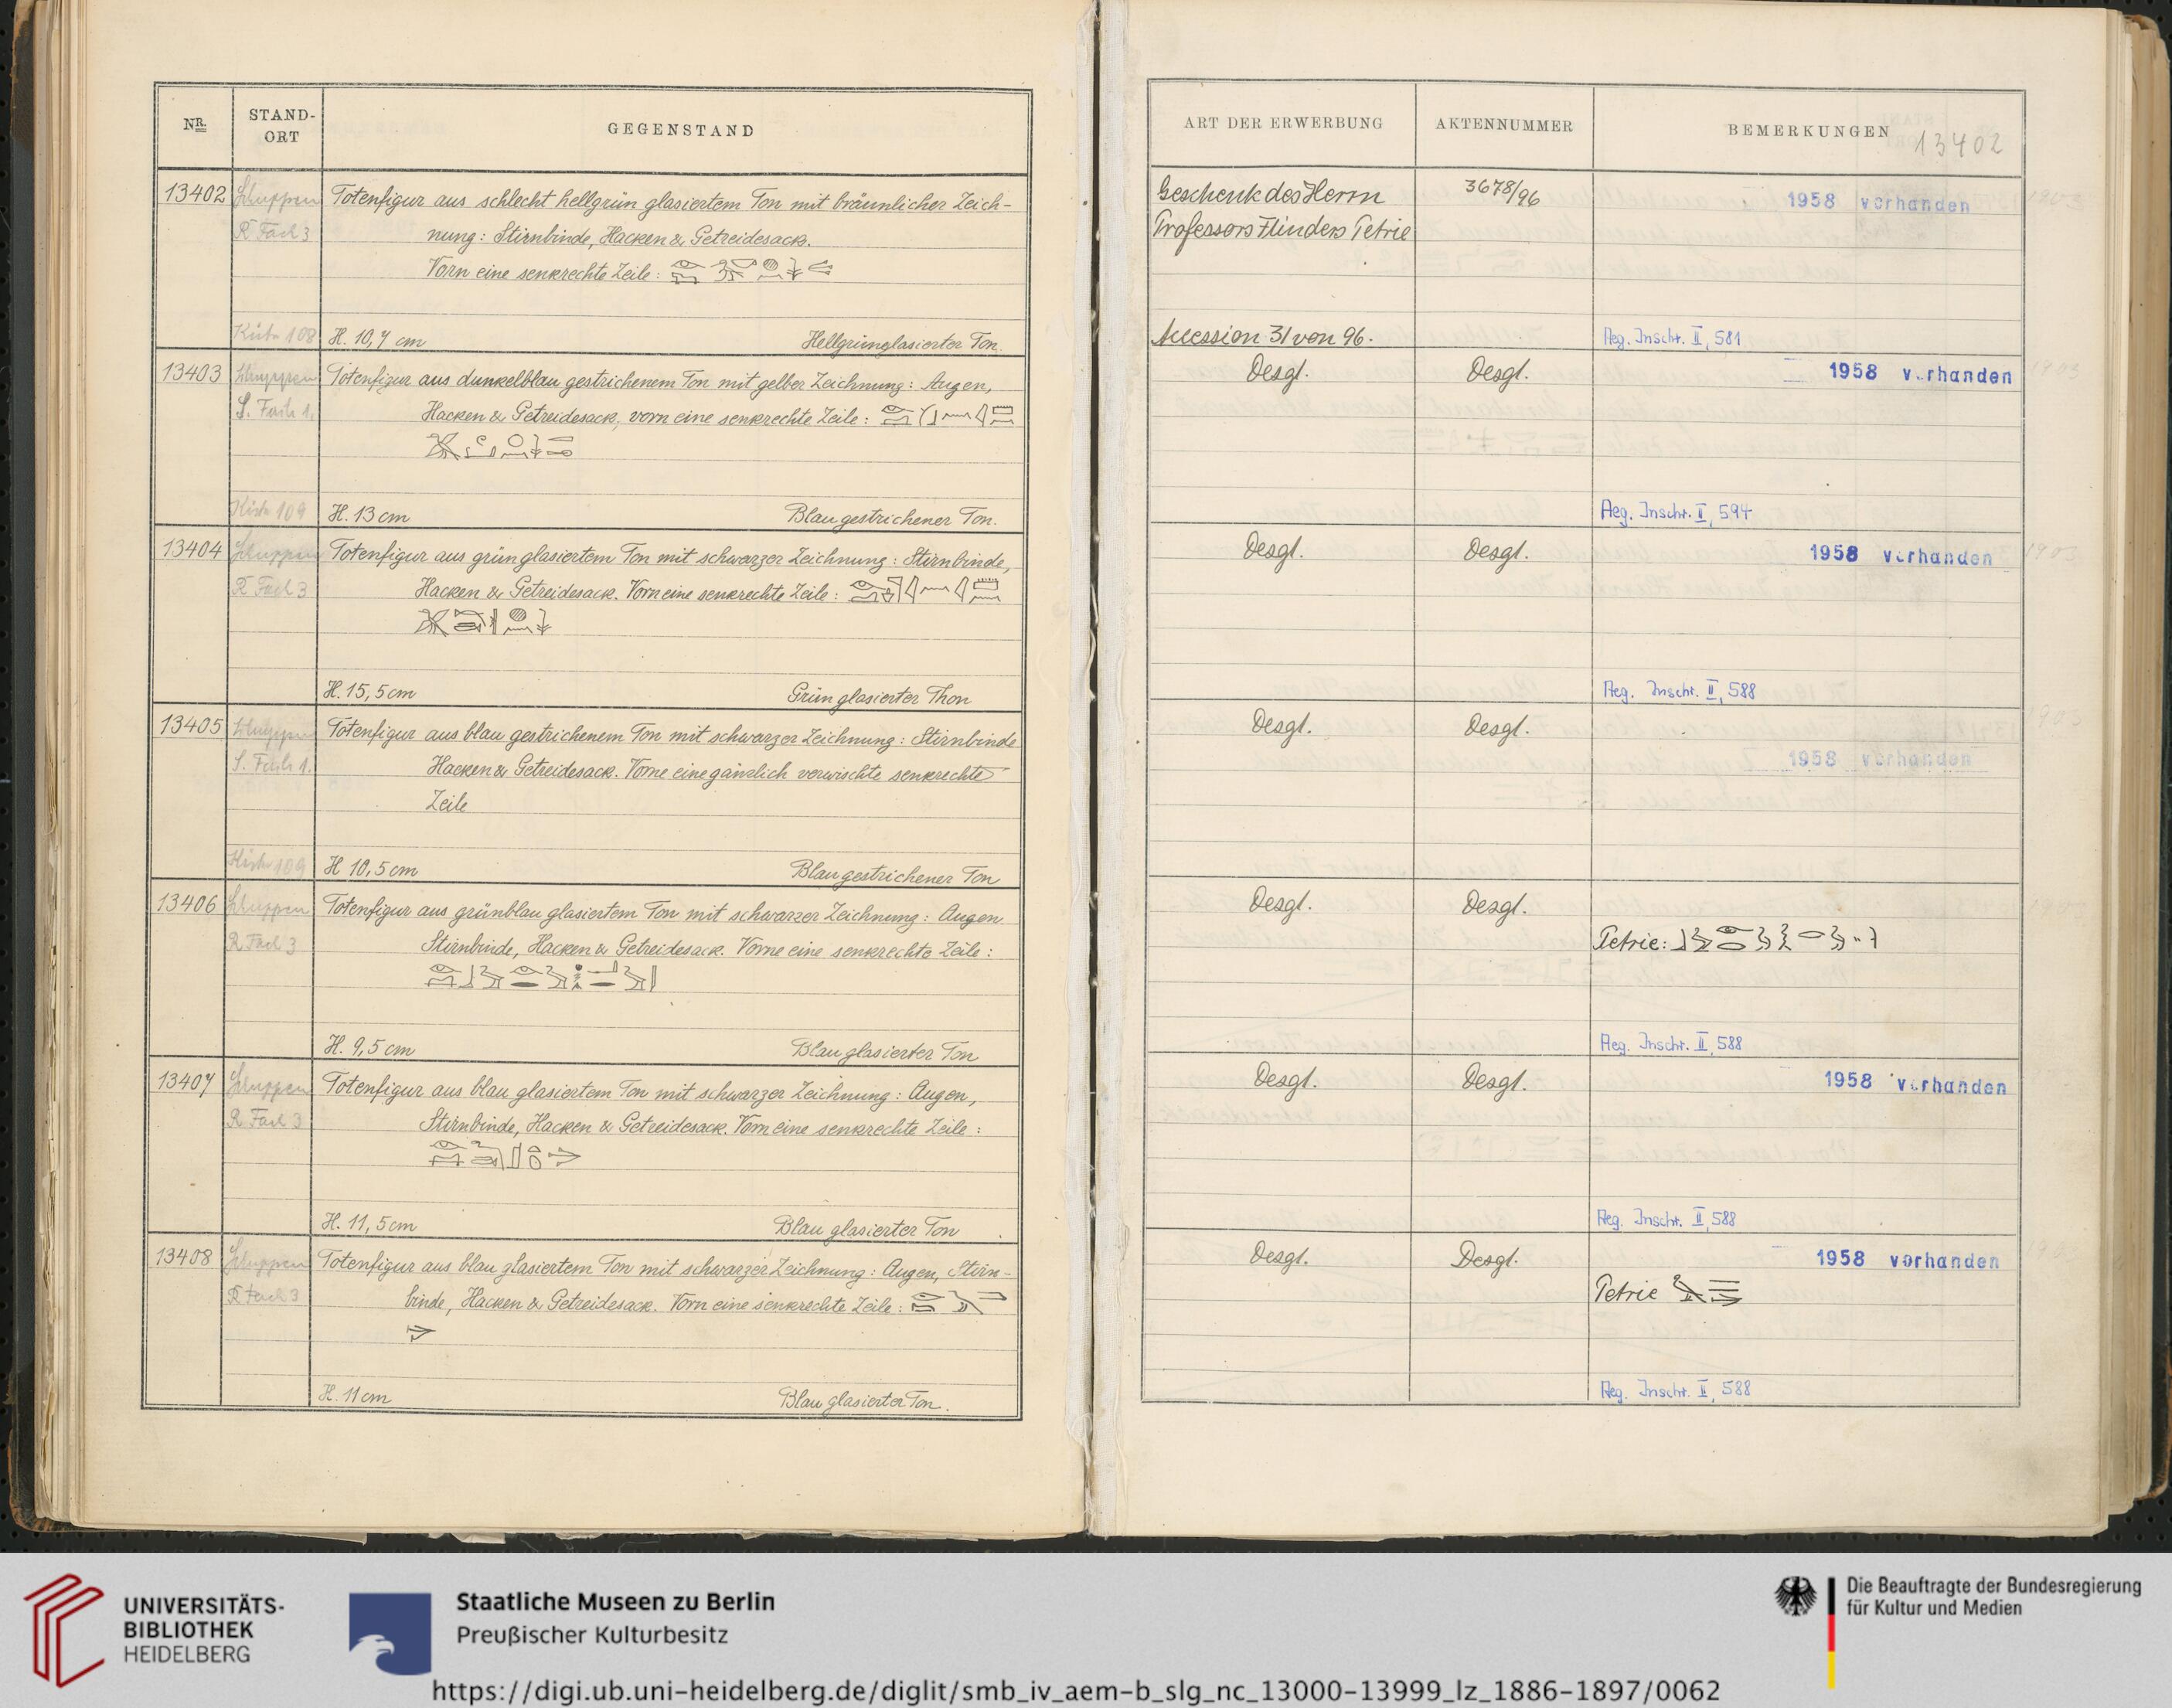 NR.
STAND-
ORT
GEGENSTAND
13402
Totenfigur aus schlecht hellgrün glasiertem Ton mit bräunlicher Zeich-
R Fach 3
nung: Stirnbinde, Hacken & Getreidesack.
Vorn eine senkrechte Zeile:
Kiste 108
H. 10,7 cm
Hellgrünglasierter Ton.
13403
Totenfigur aus dunkelblau gestrichenem Ton mit gelber Zeichnung: Augen,
S. Fach 1.
Hacken & Getreidesack, vorn eine senkrechte Zeile:
Kiste 109
H. 13 cm
Blau gestrichener Ton.
13404
Totenfigur aus grün glasiertem Ton mit schwarzer Zeichnung: Stirnbinde,
R Fach 3
Hacken & Getreidesack. Vorn eine senkrechte Zeile:
H. 15,5 cm
Grün glasierter Thon
13405
Totenfigur aus blau gestrichenem Ton mit schwarzer Zeichnung: Stirnbinde
S. Fach 1.
Hacken & Getreidesack. Vorne eine gänzlich verwischte senkrechte
Zeile
Kiste 109
H 10,5 cm
Blau gestrichener Ton
13406
Totenfigur aus grünblau glasiertem Ton mit schwarzer Zeichnung: Augen
R Fach 3
Stirnbinde, Hacken & Getreidesack. Vorne eine senkrechte Zeile:
H. 9,5 cm
Blau glasierter Ton
13407
Totenfigur aus blau glasiertem Ton mit schwarzer Zeichnung: Augen,
R Fach 3
Stirnbinde, Hacken & Getreidesack. Vorn eine senkrechte Zeile:
H. 11,5 cm
Blau glasierter Ton
13408
Totenfigur aus blau glasiertem Ton mit schwarzer Zeichnung: Augen, Stirn-
R Fach 3
binde, Hacken & Getreidesack. Vorn eine senkrechte Zeile:
H. 11 cm
Blau glasierter Ton.
ART DER ERWERBUNG
AKTENNUMMER
BEMERKUNGEN
13402
Geschenk des Herrn
3678/96
1958 vorhanden
Professors Flinders Petrie
Accession 31 von 96.
Aeg. Inschr. II, 581
Desgl.
Desgl.
1958 vorhanden
Aeg. Inschr. II, 594
Desgl.
Desgl.
1958 vorhanden
Aeg. Inschr. II, 588
Desgl.
Desgl.
1958 vorhanden
Desgl.
Desgl.
Petrie:
Aeg. Inschr. II, 588
Desgl.
Desgl.
1958 vorhanden
Aeg. Inschr. II, 588
Desgl.
Desgl.
1958 vorhanden
Petrie
Aeg. Inschr. II, 588
UNIVERSITÄTS-
BIBLIOTHEK
HEIDELBERG
Staatliche Museen zu Berlin
Preußischer Kulturbesitz
Die Beauftragte der Bundesregierung
für Kultur und Medien
https://digi.ub.uni-heidelberg.de/diglit/smb_iv_aem-b_slg_nc_13000-13999_lz_1886-1897/0062